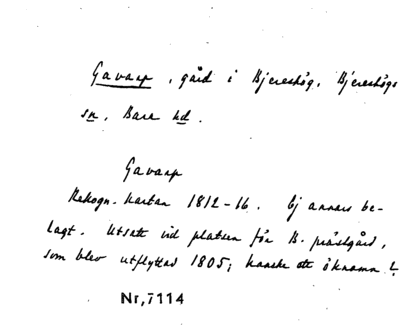 Gavarp, gård i Bjereshög, Bjereshögs
sn, Bara hd.
Gavarp
Rekogn. kartan 1812-16. Ej annars be-
lagt. Utsatt vid platsen för B. prästgård,
som blev utflyttad 1805; kanske ett öknamn?
Nr, 7114